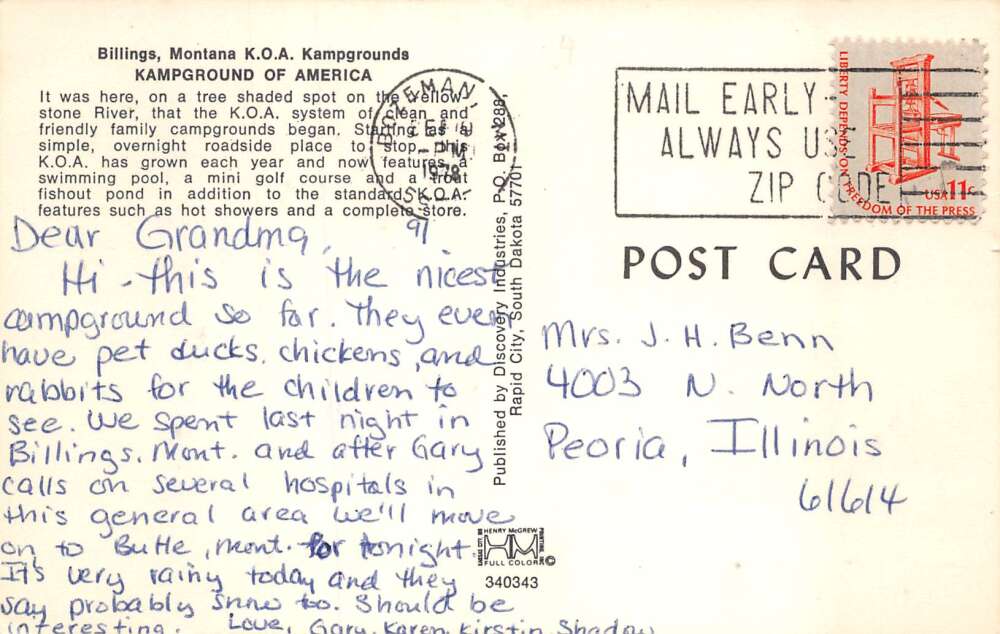 Billings, Montana K.O.A. Kampgrounds
KAMPGROUND OF AMERICA
It was here, on a tree shaded spot on the Yellow-
stone River, that the K.O.A. system of clean and
friendly family campgrounds began. Starting as a
simple, overnight roadside place to stop, this
K.O.A. has grown each year and now features a
swimming pool, a mini golf course and a trout
fishout pond in addition to the standard K.O.A.
features such as hot showers and a complete store.
Dear Grandma,
Hi - this is the nicest
campground so far. They even
have pet ducks, chickens, and
rabbits for the children to
see. We spent last night in
Billings, Mont. and after Gary
calls on several hospitals in
this general area we'll move
on to Butte, Mont. for tonight.
It's very rainy today and they
say probably snow too. Should be
interesting.
Love, Gary, Karen, Kirstin, Shadow
BOZEMAN
PM
1978
97
Published by Discovery Industries, P.O. Box 288,
Rapid City, South Dakota 57701
MAIL EARLY
ALWAYS USE
ZIP CODE
LIBERTY DEPENDS ON FREEDOM OF THE PRESS
USA 11c
POST CARD
Mrs. J. H. Benn
4003 N. North
Peoria, Illinois
61614
HENRY McGREW
PRINTING, INC
KANSAS CITY, MO
HM
FULL COLOR
©
340343